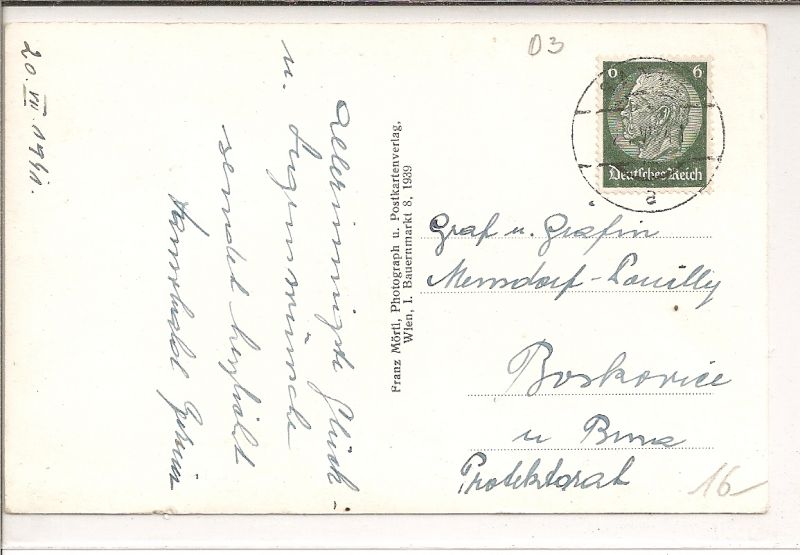 20. VII. 1941.
Allerinnigste Glück-
u. Segenswünsche
sendet herzlichst
Franz Mörtl, Photograph u. Postkartenverlag,
Wien, I. Bauernmarkt 8, 1939
D3
6 6
Deutsches Reich
a
Graf u. Gräfin
Mensdorf-Pouilly
Boskovice
u Brna
Protektorat
16